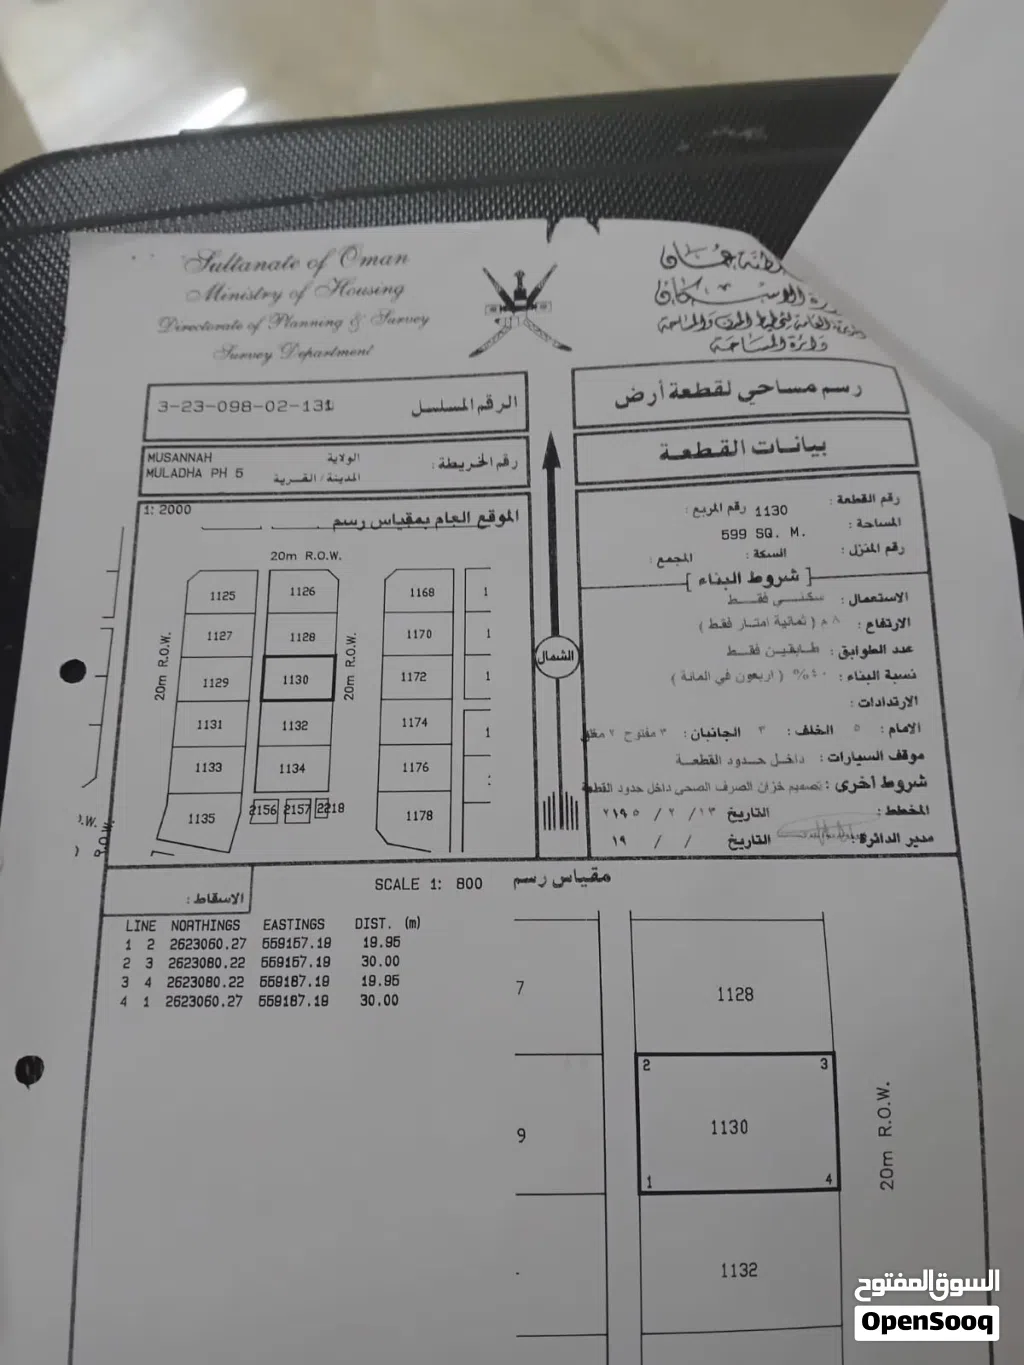 Sultanate of Oman
Ministry of Housing
Directorate of Planning & Survey
Survey Department
دائرة المساحة
رسم مساحي لقطعة أرض
بيانات القطعة
3-23-098-02-131 الرقم المسلسل
MUSANNAH الولاية
MULADHA PH 5 المدينة / القرية
رقم الخريطة :
1: 2000
الموقع العام بمقياس رسم
20m R.O.W.
1125 1126 1168
1127 1128 1170
1129 1130 1172
1131 1132 1174
1133 1134 1176
1135 2156 2157 2218 1178
20m R.O.W.
20m R.O.W.
الشمال
رقم القطعة : 1130 رقم المربع :
المساحة : 599 SQ. M.
رقم المنزل : السكة : المجمع :
[ شروط البناء ]
الاستعمال : سكني فقط
الارتفاع : ٨ م ( ثمانية امتار فقط )
عدد الطوابق : طابقين فقط
نسبة البناء : ٤٠% ( اربعون في المائة )
الارتدادات :
الامام : ٥ الخلف : ٣ الجانبان : ٣ مفتوح ٢ مغلق
موقف السيارات : داخل حدود القطعة
شروط أخرى : تصميم خزان الصرف الصحي داخل حدود القطعة
المخطط : التاريخ
مدير الدائرة : التاريخ / / ١٩
SCALE 1: 800 مقياس رسم
الاسقاط :
LINE NORTHINGS EASTINGS DIST. (m)
1 2 2623060.27 559157.19 19.95
2 3 2623080.22 559157.19 30.00
3 4 2623080.22 559187.19 19.95
4 1 2623060.27 559187.19 30.00
7
1128
2 3
9
1130
1 4
20m R.O.W.
1132
السوق المفتوح
OpenSooq